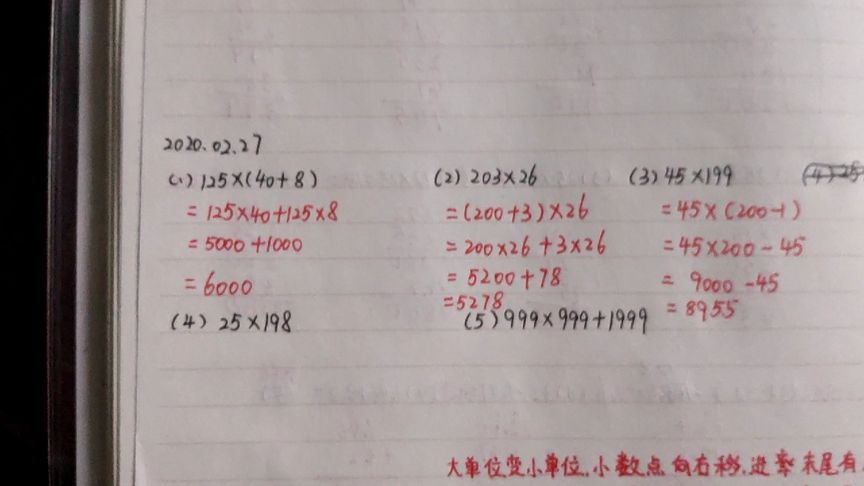 2020.02.27
(1) 125×(40+8)
=125×40+125×8
=5000+1000
=6000
(2) 203×26
=(200+3)×26
=200×26+3×26
=5200+78
=5278
(3) 45×199
=45×(200-1)
=45×200-45
=9000-45
=8955
(4) 25×198
(5) 999×999+1999
大单位变小单位,小数点向右移,进率末尾有